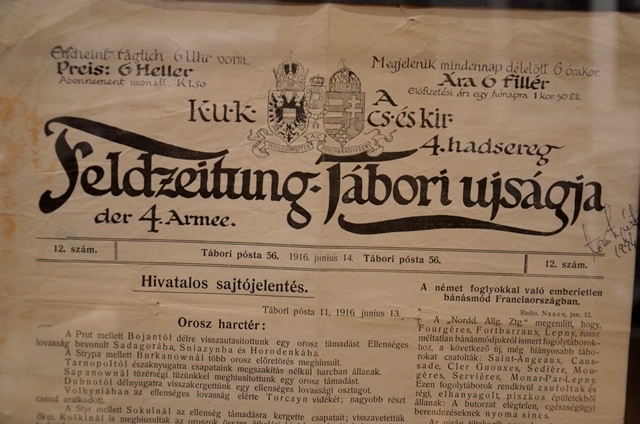 Erscheint täglich 6 Uhr vorm.
Preis: 6 Heller
Abonnement monatl. K 1.50
Megjelenik mindennap délelőtt 6 órakor.
Ára 6 fillér
Előfizetési ár: egy hónapra 1 kor. 50 fill.
K.u.k
A
cs. és kir
4. hadsereg
Feldzeitung-Tábori ujságja
der 4. Armee.
12. szám.
Tábori pósta 56. 1916. junius 14. Tábori pósta 56.
12. szám.
Hivatalos sajtójelentés.
Tábori pósta 11, 1916. junius 13.
Orosz harctér:
A Prut mellett Bojantól délre visszautasítottunk egy orosz támadást. Ellenséges
lovasság bevonult Sadagorába, Sniazynba és Horodenkába.
A Strypa mellett Burkanownál több orosz előretörés meghiusult.
Tarnopoltól északnyugatra csapataink megszakítás nélkül harcban állanak.
Sapanownál tüzérségi tüzünkkel meghiusítottunk egy orosz támadást.
Dubnotól délnyugatra visszakergettünk egy ellenséges lovassági osztagot.
Volhyniában az ellenséges lovasság elérte Torczyn vidékét; nagyobb részt
csend uralkodott.
A Styr mellett Sokulnál az ellenség támadásra kergette csapatait; visszavetettük
őket. Kolkinál is meghiusultak az oroszok
A német foglyokkal való embertelen
bánásmód Franciaországban.
Radio. Nauen, jun. 12.
A „Nordd. Allg. Ztg.“ megemlíti, hogy,
Fourgères, Fortbarraux, Lepny, rossz
méltatlan bánásmódjukról ismert fogolytáborok-
hoz, a következő új, még hiányosabb tábo-
rokat csatolták: Saint-Angeaux, Caus-
sade, Cler Guouxes, Sedière, Mou-
gères, Servières, Monar-Par-Lepny.
Ezen fogolytáborok rendkívül zsufoltak és
régi, elhanyagolt, piszkos épületekből
állanak. A butorzat elégtelen, egészségügyi
berendezéseknek nyoma sincs.